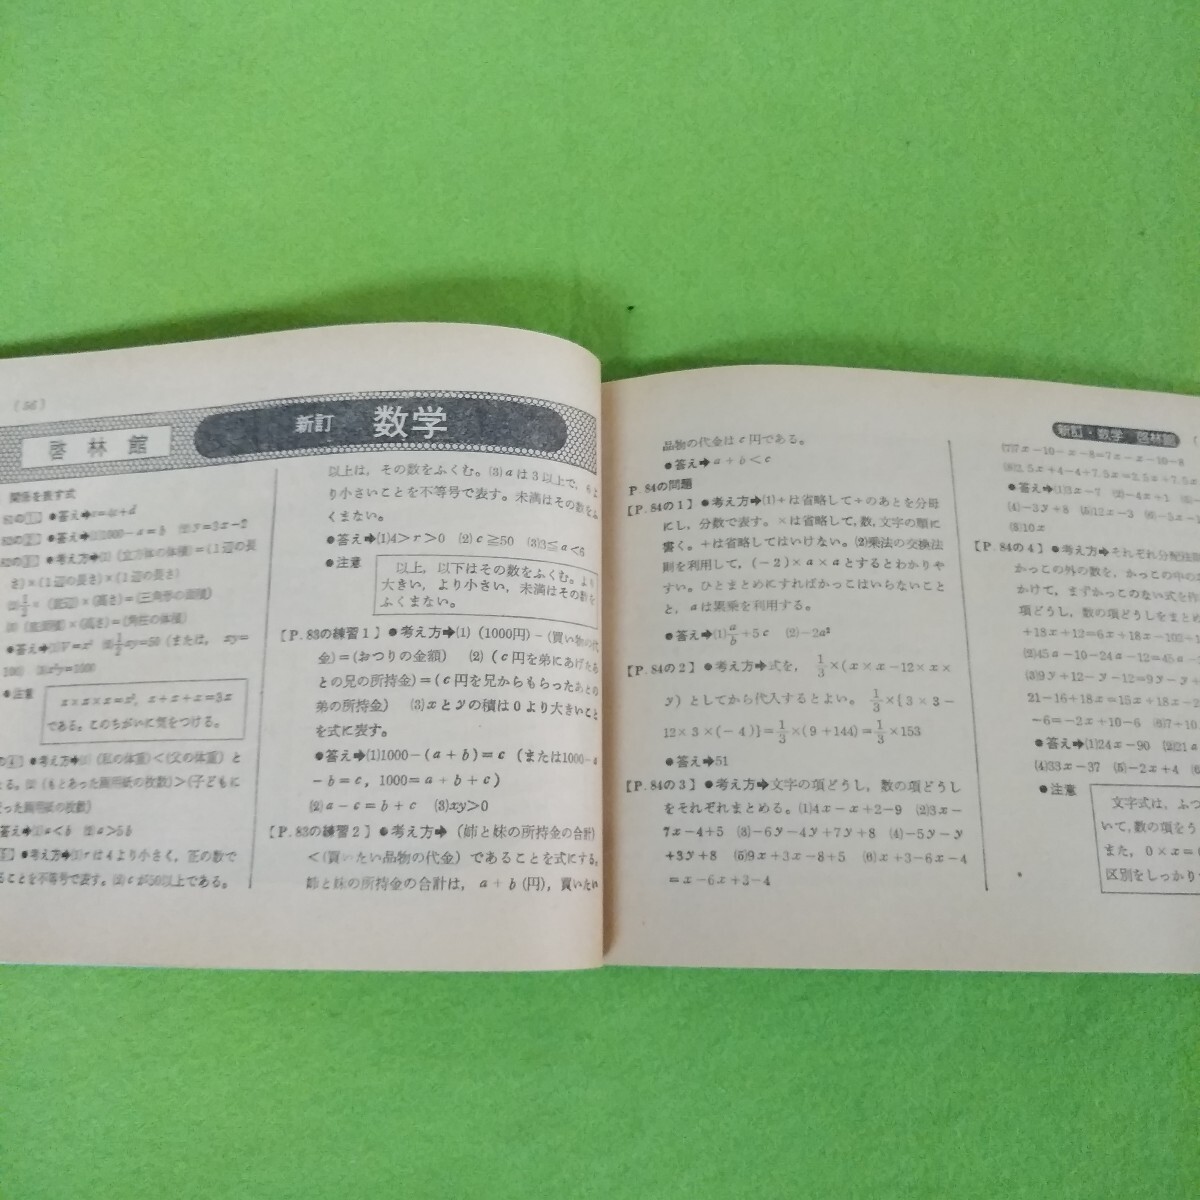 (56)
啓林館
新訂 数学
関係を表す式
●答え➡
●答え➡(1)1000−a=b (2)y=3x−2
●考え方➡(1)(立方体の体積)=(1辺の長
さ)×(1辺の長さ)×(1辺の長さ)
(2)1/2×(底辺)×(高さ)=(三角形の面積)
(3)(底面積)×(高さ)=(角柱の体積)
●答え➡(1)V=x³ (2)1/2xy=50(または, xy=
100) (3)x²y=1000
●注意
x×x×x=x³, x+x+x=3x
である。このちがいに気をつける。
●考え方➡(1)(私の体重)<(父の体重)と
る。(2)(もとあった画用紙の枚数)>(子どもに
った画用紙の枚数)
答え➡(1)a<b (2)a>5b
●考え方➡(1)rは4より小さく, 正の数で
ことを不等号で表す。(2)cが50以上である。
以上は, その数をふくむ。(3)aは3以上で, 6よ
り小さいことを不等号で表す。未満はその数をふ
くまない。
●答え➡(1)4>r>0 (2)c≧50 (3)3≦a<6
●注意
以上, 以下はその数をふくむ。より
大きい, より小さい, 未満はその数を
ふくまない。
【P.83の練習1】●考え方➡(1) (1000円)−(買い物の代
金)=(おつりの金額) (2) (c円を弟にあげたあ
との兄の所持金)=(c円を兄からもらったあとの
弟の所持金) (3)xとyの積は0より大きいこと
を式に表す。
●答え➡(1)1000−(a+b)=c (または1000−a
−b=c, 1000=a+b+c)
(2)a−c=b+c (3)xy>0
【P.83の練習2】●考え方➡(姉と妹の所持金の合計)
<(買いたい品物の代金)であることを式にする。
姉と妹の所持金の合計は, a+b(円), 買いたい
新訂・数学 啓林館 (
品物の代金はc円である。
●答え➡a+b<c
P.84の問題
【P.84の1】●考え方➡(1)÷は省略して÷のあとを分母
にし, 分数で表す。×は省略して, 数, 文字の順に
書く。+は省略してはいけない。(2)乗法の交換法
則を利用して, (−2)×a×aとするとわかりや
すい。ひとまとめにすればかっこはいらないこと
と, aは累乗を利用する。
●答え➡(1)a/b+5c (2)−2a²
【P.84の2】●考え方➡式を, 1/3×(x×x−12×x×
y)としてから代入するとよい。1/3×{3×3−
12×3×(−4)}=1/3×(9+144)=1/3×153
●答え➡51
【P.84の3】●考え方➡文字の項どうし, 数の項どうし
をそれぞれまとめる。(1)4x−x+2−9 (2)3x−
7x−4+5 (3)−6y−4y+7y+8 (4)−5y−y
+3y+8 (5)9x+3x−8+5 (6)x+3−6x−4
=x−6x+3−4
(7)7x−10−x−8=7x−x−10−8
(8)2.5x+4−4+7.5x=2.5x+7.5x
●答え➡(1)3x−7 (2)−4x+1 (3)
(4)−3y+8 (5)12x−3 (6)−5x−1
(8)10x
【P.84の4】●考え方➡それぞれ分配法則
かっこの外の数を, かっこの中の
かけて, まずかっこのない式を作
項どうし, 数の項どうしをまとめ
+18x+12=6x+18x−
(2)45a−10−24a−12=45a−
(3)9y+12−y−12=9y−y+
21−16+18x=15x+18x−2
−6=−2x+10−6 (6)7+10
●答え➡(1)24x−90 (2)21a
(4)33x−37 (5)−2x+4 (6)
●注意
文字式は, ふつ
いて, 数の項をう
また, 0×x=
区別をしっかり